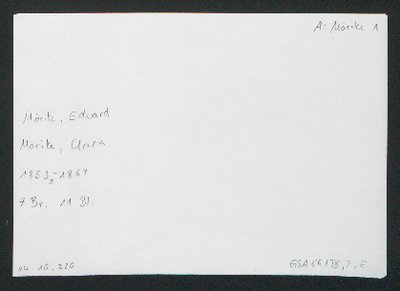 A: Mörike 1
Mörike, Eduard
Mörike, Clara
1853-1867
7 Br. 11 Bl.
04.10.220
GSA 66 I